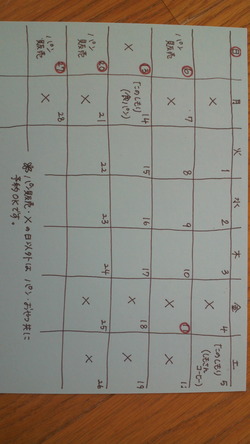 日 月 火 水 木 金 土
1 2 3 4 5
× 「このしもり」
コーヒー)
6 7 8 9 10 11 12
パン × ×
販売
13 14 15 16 17 18 19
× 「このしもり」 × ×
(食パン)
20 21 22 23 24 25 26
パン × × ×
販売
27 28
パン ×
販売
※パン販売・×の日以外は パン、おやつ共に
予約OKです。